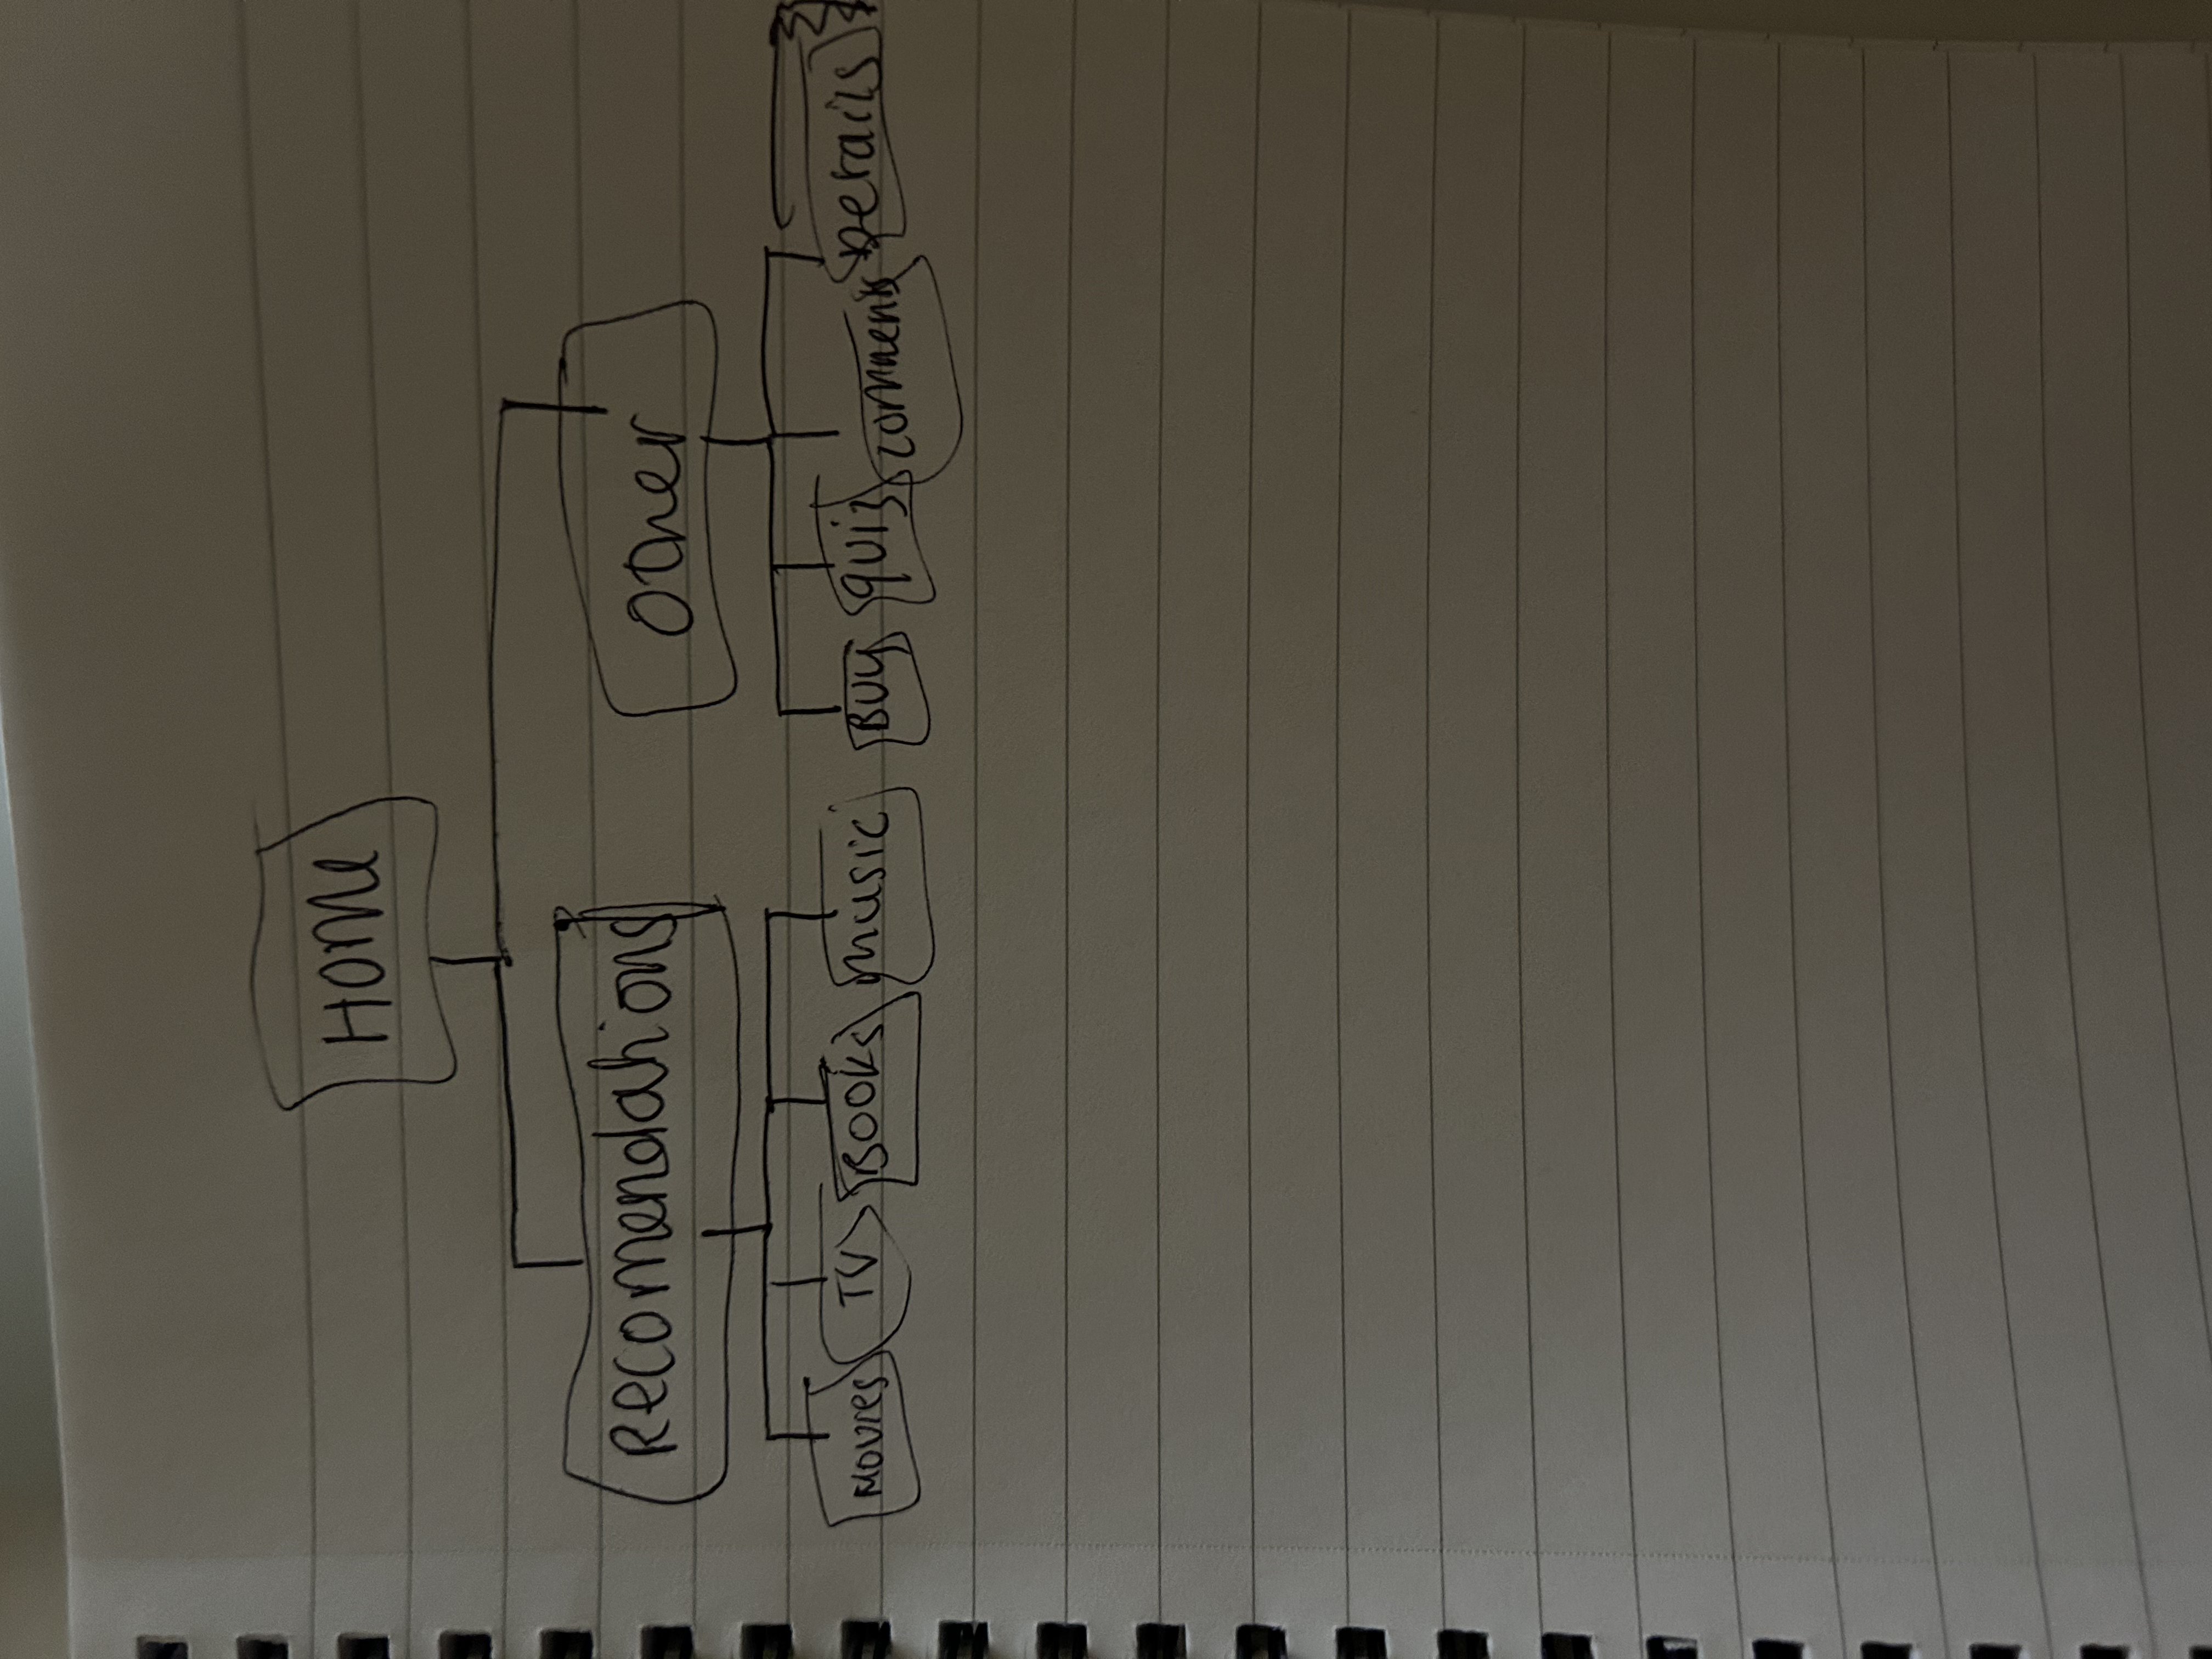 Home
Recomendations Other
Movies TV Books music Buy quiz comments Details